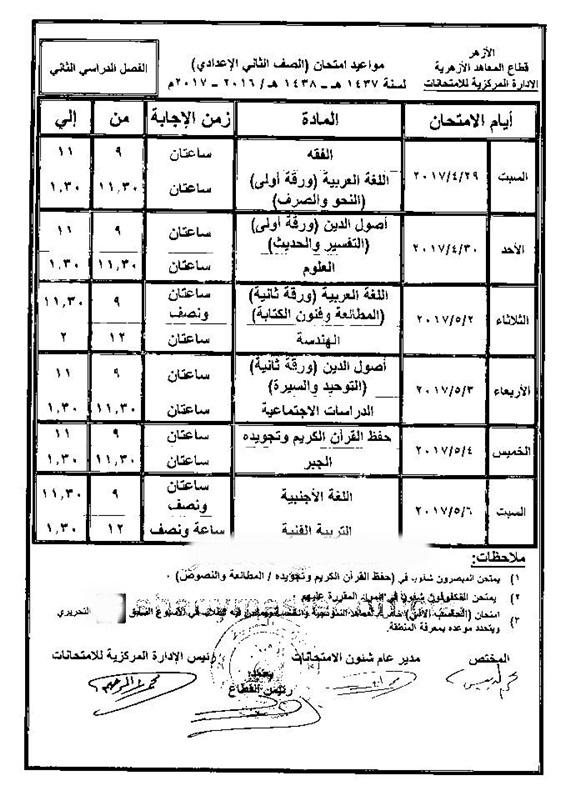 الأزهر
قطاع المعاهد الأزهرية
الادارة المركزية للامتحانات
مواعيد امتحان (الصف الثاني الإعدادي)
لسنة ١٤٣٧ هـ - ١٤٣٨ هـ / ٢٠١٦ - ٢٠١٧م
الفصل الدراسي الثاني
أيام الامتحان المادة زمن الإجابة من إلي
السبت ٢٠١٧/٤/٢٩ الفقه ساعتان ٩ ١١
اللغة العربية (ورقة أولى) (النحو والصرف) ساعتان ١١,٣٠ ١,٣٠
الأحد ٢٠١٧/٤/٣٠ أصول الدين (ورقة أولى) (التفسير والحديث) ساعتان ٩ ١١
العلوم ساعتان ١١,٣٠ ١,٣٠
الثلاثاء ٢٠١٧/٥/٢ اللغة العربية (ورقة ثانية) (المطالعة وفنون الكتابة) ساعتان ونصف ٩ ١١,٣٠
الهندسة ساعتان ١٢ ٢
الأربعاء ٢٠١٧/٥/٣ أصول الدين (ورقة ثانية) (التوحيد والسيرة) ساعتان ٩ ١١
الدراسات الاجتماعية ساعتان ١١,٣٠ ١,٣٠
الخميس ٢٠١٧/٥/٤ حفظ القرآن الكريم وتجويده ساعتان ٩ ١١
الجبر ساعتان ١١,٣٠ ١,٣٠
السبت ٢٠١٧/٥/٦ اللغة الأجنبية ساعتان ونصف ٩ ١١,٣٠
التربية الفنية ساعة ونصف ١٢ ١,٣٠
ملاحظات:
١) يمتحن المبصرون شفويا في (حفظ القرآن الكريم وتجويده / المطالعة والنصوص) .
٢) يمتحن المكفوفون شفويا في المواد المقررة عليهم
٣) امتحان (الحاسب الآلي) الأسبوع السابق التحريري
ويتحدد موعده بمعرفة المنطقة.
المختص مدير عام شئون الامتحانات رئيس الإدارة المركزية للامتحانات
يعتمد
رئيس القطاع